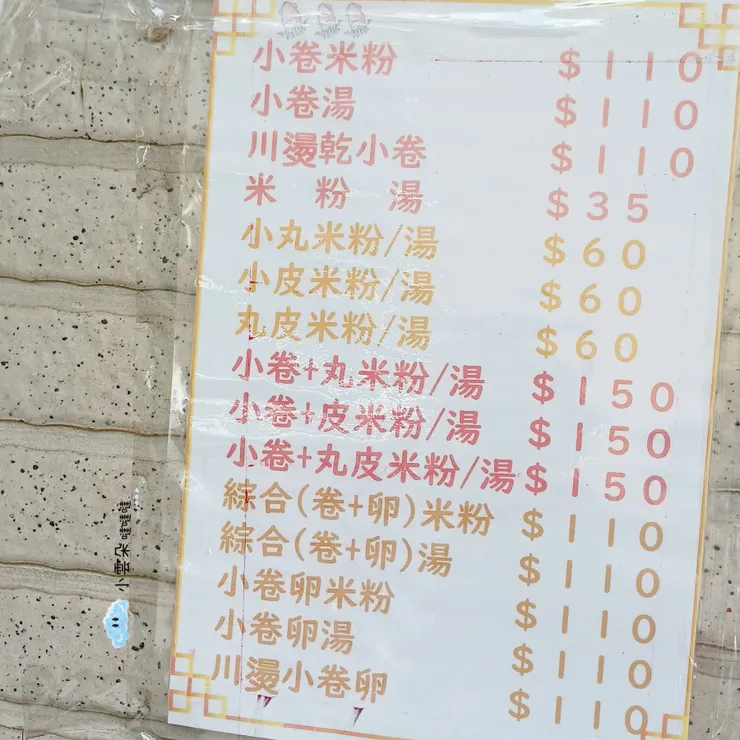 小卷米粉 $110
小卷湯 $110
川燙乾小卷 $110
米 粉 湯 $35
小丸米粉/湯 $60
小皮米粉/湯 $60
丸皮米粉/湯 $60
小卷+丸米粉/湯 $150
小卷+皮米粉/湯 $150
小卷+丸皮米粉/湯 $150
綜合(卷+卵)米粉 $110
綜合(卷+卵)湯 $110
小卷卵米粉 $110
小卷卵湯 $110
川燙小卷卵 $110
小雲朵哇哇哇